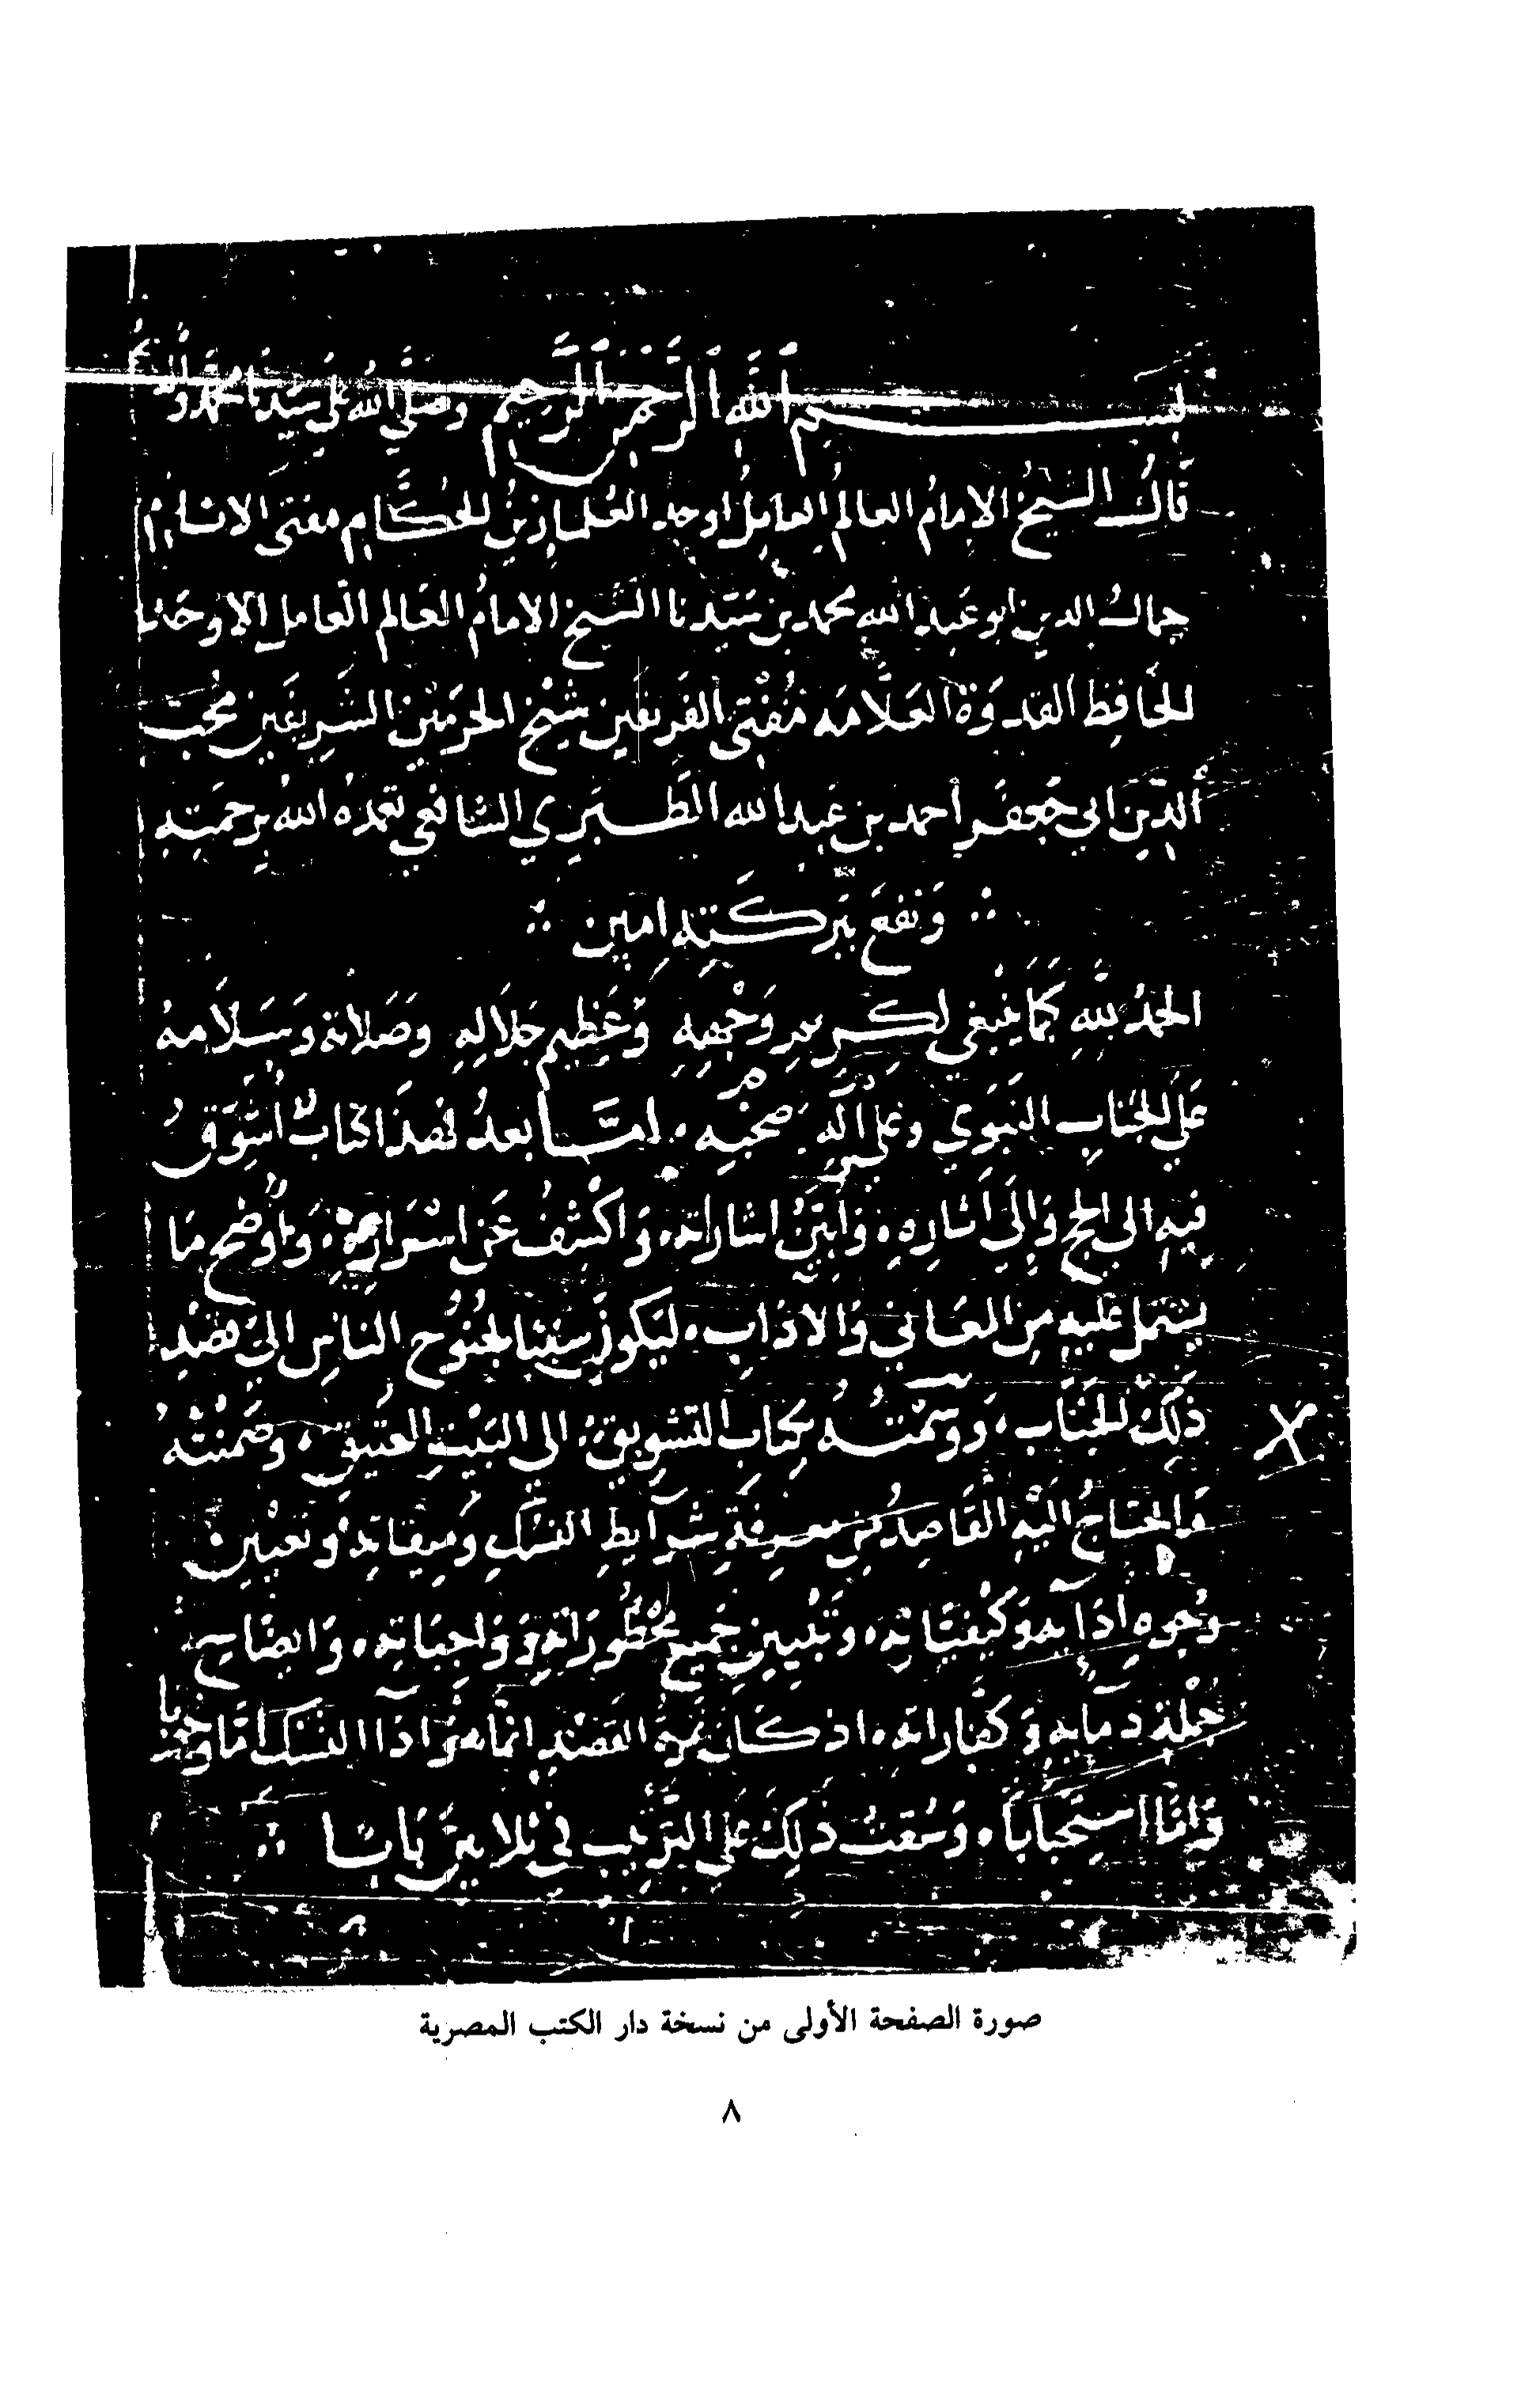 بسم الله الرحمن الرحيم وصلى الله على سيدنا محمد وآله
قال الشيخ الامام العالم العامل اوحد العلماء زين الحكام مفتى الانام
جمال الدين ابو عبد الله محمد بن سيدنا الشيخ الامام العالم العامل الاوحد
الحافظ القدوة العلامه مفتى الفريقين شيخ الحرمين الشريفين محب
الدين ابى جعفر أحمد بن عبد الله الطبري الشافعي تغمده الله برحمته
ونفع ببركته امين
الحمد لله كما ينبغى لكريم وجهه وعظيم جلاله وصلاته وسلامه
على الجناب النبوي وعلى اله وصحبه، امّا بعد فهذا كتاب أشوق
فيه الى الحج وإلى أثاره، وأبين اشاراته، واكشف عن اسراره، وأوضح ما
يشتمل عليه من المعاني والاداب، ليكون سببا لجنوح الناس الى قصد
ذلك الجناب، ووسمته بكتاب التشويق، الى البيت العتيق، وضمنته
ما يحتاج اليه القاصد من معرفة شرايط النسك وميقاته وتعيين
وجوه ادايه وكيفياته، وتبيين جميع محظوراته وواجباته، وايضاح
جملة دمايه وكفاراته، اذ كان ثمرة القصد انما هو اداء النسك امّا وجوبا
وامّا استحبابا، وسقت ذلك على الترتيب في ثلاثين بابا
صورة الصفحة الأولى من نسخة دار الكتب المصرية
٨